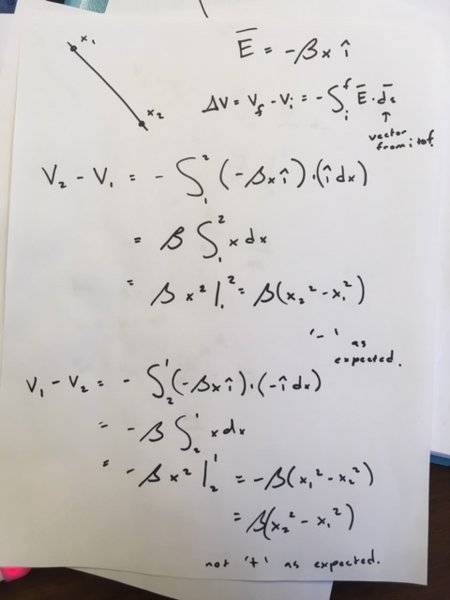 x₁
x₂
E̅ = -βx î
ΔV = V_f - V_i = -∫ᵢᶠ E̅ · d̅s
↑
vector
from i to f.
V₂ - V₁ = -∫₁² (-βx î) · (î dx)
= β ∫₁² x dx
= β x² |₁² = β(x₂² - x₁²)
'-' as
expected.
V₁ - V₂ = -∫₂¹ (-βx î) · (-î dx)
= -β ∫₂¹ x dx
= -β x² |₂¹ = -β(x₁² - x₂²)
= β(x₂² - x₁²)
not '+' as expected.